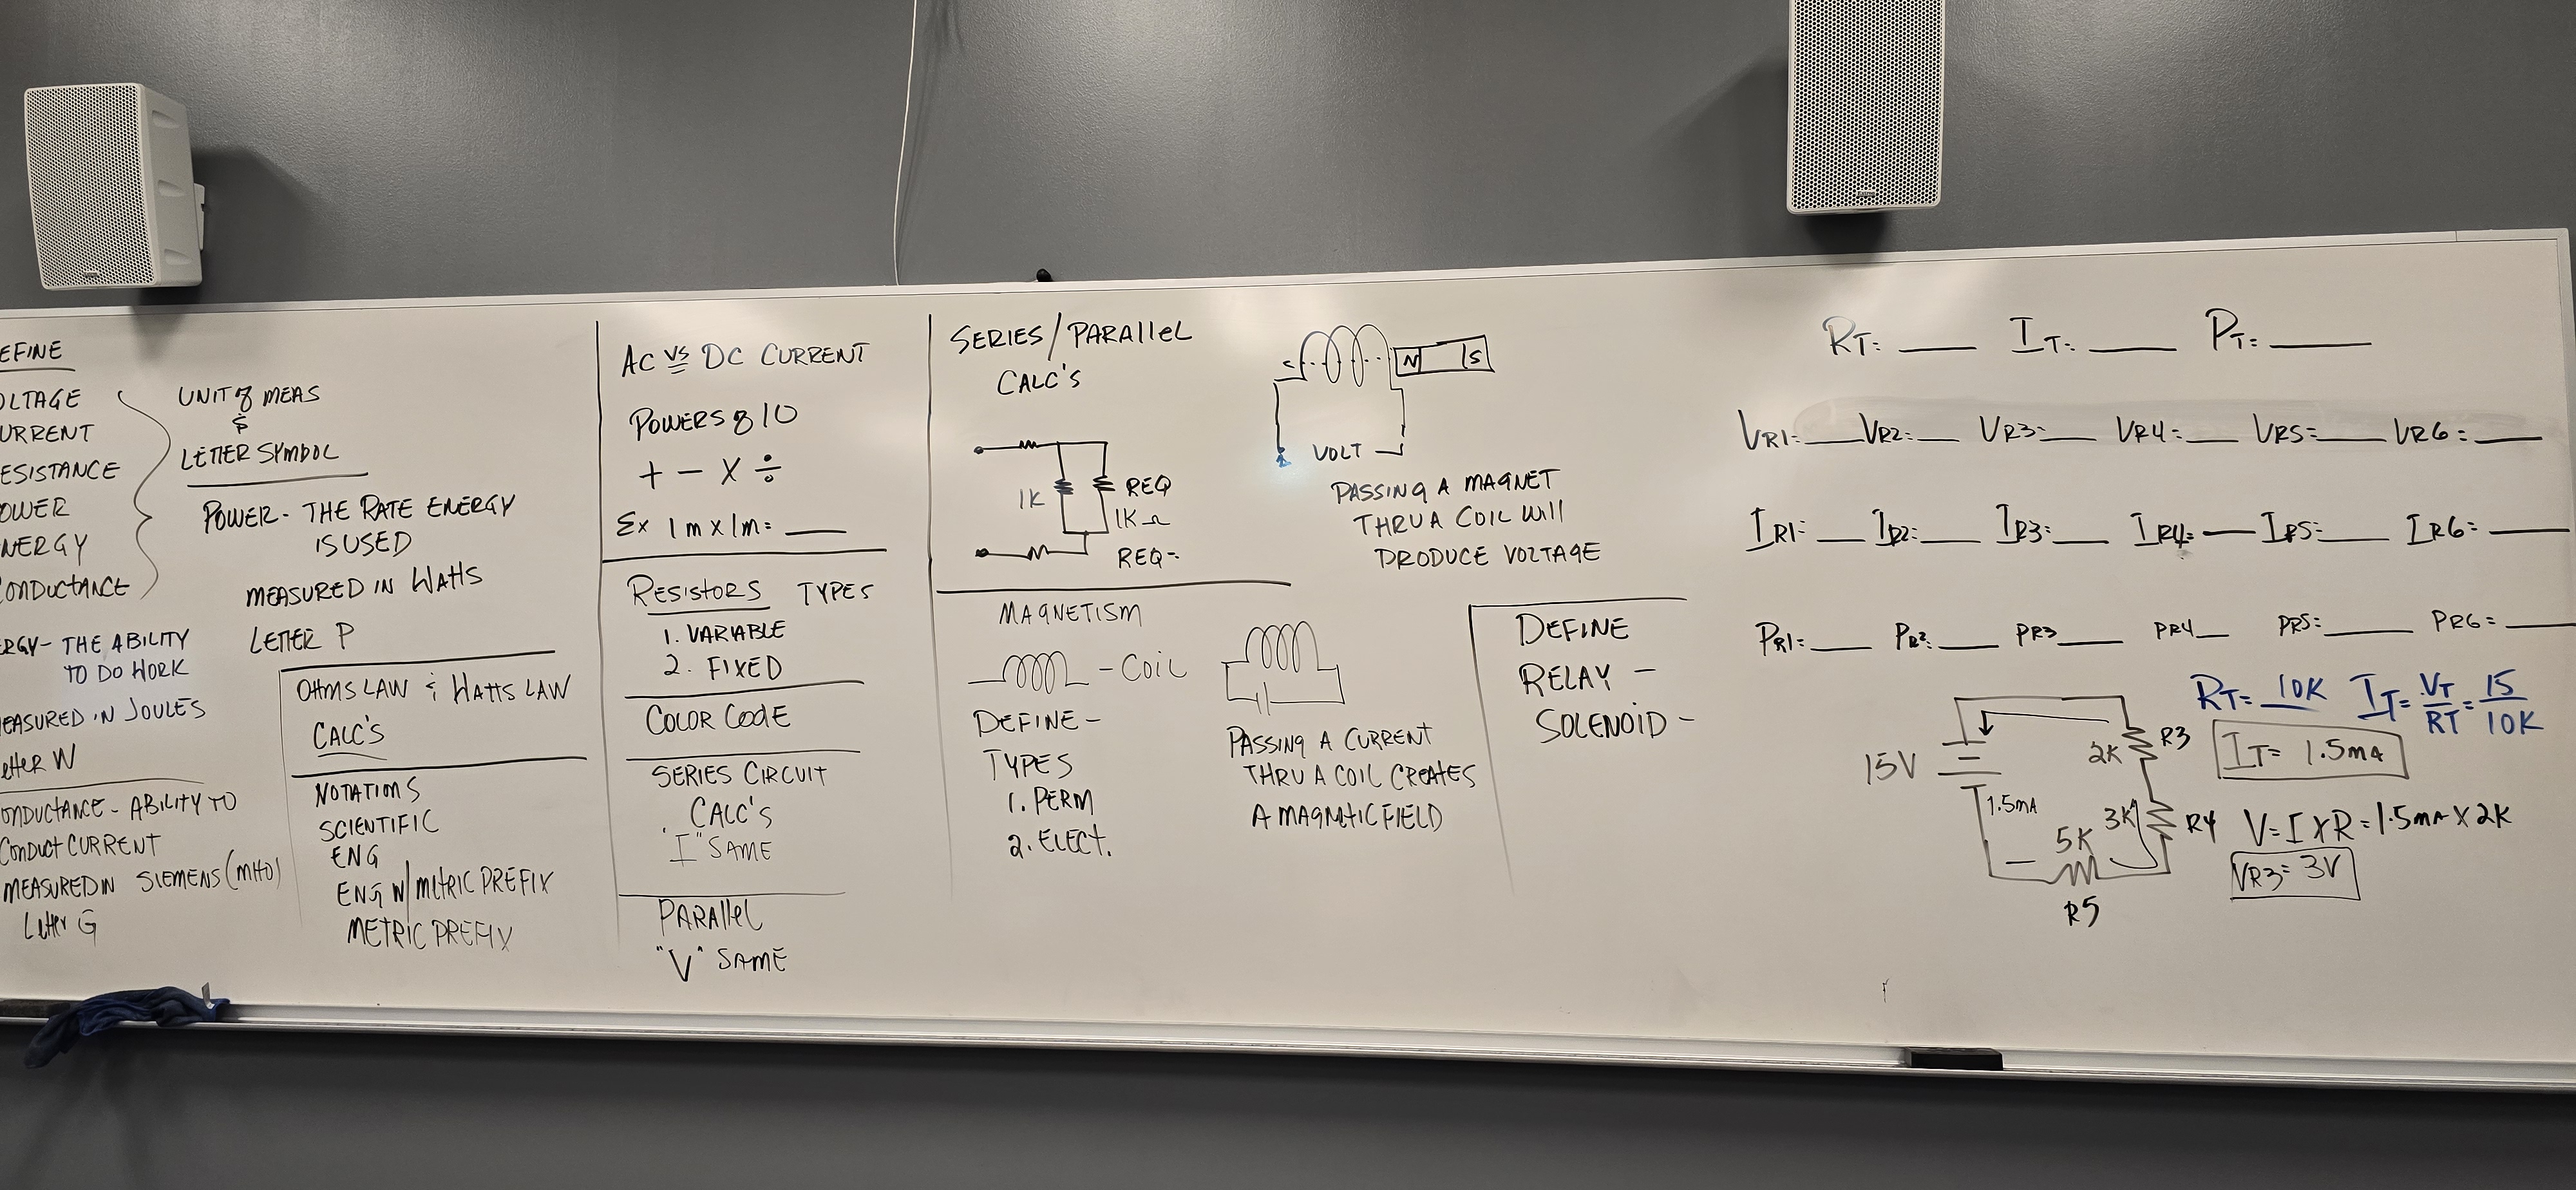 EFINE
OLTAGE
URRENT
ESISTANCE
OWER
NERGY
CONDUCTANCE
UNIT of MEAS
&
LETTER SYMBOL
POWER - THE RATE ENERGY
IS USED
MEASURED IN WATTS
LETTER P
ERGY - THE ABILITY
TO DO WORK
MEASURED IN JOULES
etter W
ONDUCTANCE - ABILITY TO
CONDUCT CURRENT
MEASURED IN SIEMENS (MHO)
Letter G
OHMS LAW & WATTS LAW
CALC'S
NOTATIONS
SCIENTIFIC
ENG
ENG W/METRIC PREFIX
METRIC PREFIX
AC VS DC CURRENT
POWERS of 10
+ - X ÷
EX 1m x 1m = ____
RESISTORS TYPES
1. VARIABLE
2. FIXED
COLOR CODE
SERIES CIRCUIT
CALC'S
"I" SAME
PARALLEL
"V" SAME
SERIES/PARALLEL
CALC'S
1K
REQ
1K Ω
REQ-
N S
VOLT
PASSING A MAGNET
THRU A COIL WILL
PRODUCE VOLTAGE
MAGNETISM
- COIL
DEFINE -
TYPES
1. PERM
2. ELECT.
PASSING A CURRENT
THRU A COIL CREATES
A MAGNETIC FIELD
DEFINE
RELAY -
SOLENOID -
RT= ____ IT= ____ PT= ____
VR1= ____ VR2= ____ VR3= ____ VR4= ____ VR5= ____ VR6= ____
IR1= ____ IR2= ____ IR3= ____ IR4= ____ IR5= ____ IR6= ____
PR1= ____ PR2= ____ PR3 ____ PR4 ____ PR5= ____ PR6= ____
RT= 10K IT= VT/RT = 15/10K
IT= 1.5mA
15V
2K R3
1.5mA
3K R4
5K
R5
V=I X R=1.5mA X 2K
VR3= 3V